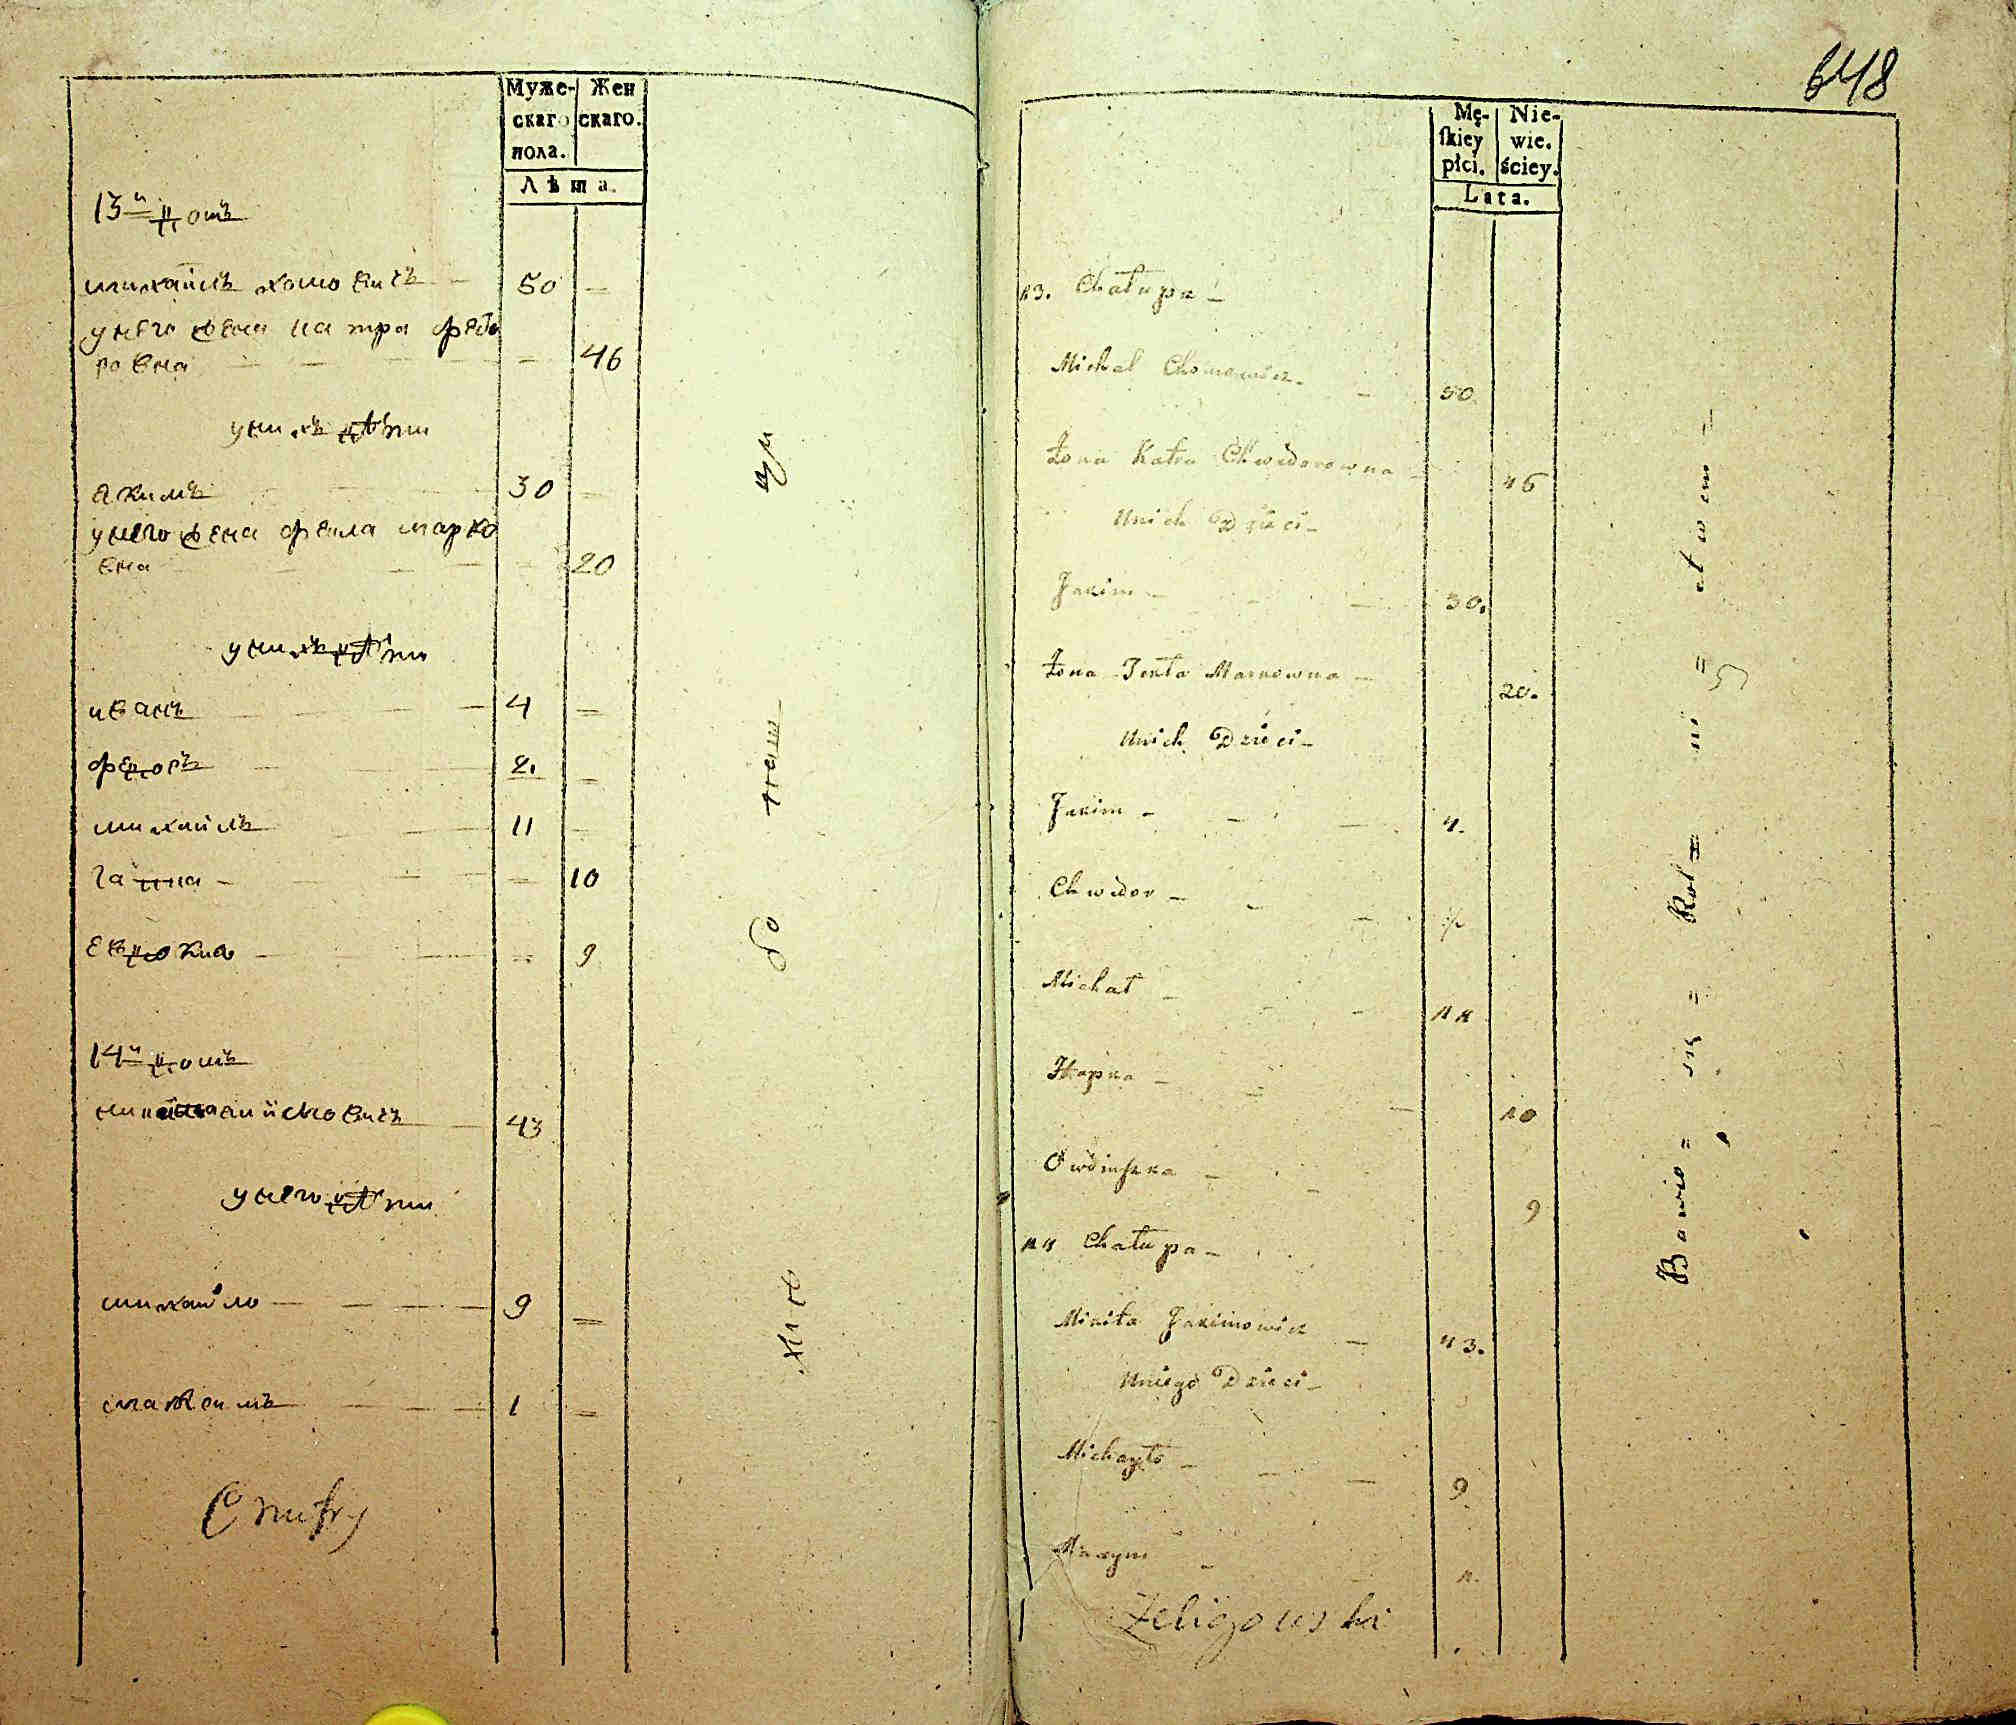 Муже-
скаго
пола.
Жен
скаго.
Лѣта.
13й домъ
михаилъ хомовичъ 50
унего жена катра федо
ровна 46
унихъ дѣти
якимъ 30
унего жена фекла марко
вна 20
унихъ дѣти
иванъ 4
федоръ 2.
михаилъ 11
ганна 10
евдокия 9
14й домъ
43
унего дѣти
михайло 9
максимъ 1
хлѣбо паш
ци
648
Mę-
skiey
płci.
Nie-
wie.
ściey.
Lata.
13. Chałupa
Michał Chomowicz 50
Żona Katra Chwedorowna 46
Unich Dzieci
Jakim 30.
Żona Tekla Markowna 20.
Unich Dzieci
Jakim 4.
Chwedor
Michał 11
Hapka 10
9
14 Chałupa
Mikita Jakimowicz 43.
Uniego Dzieci
Michayło 9
Maxym 1.
Żeligowski
Bawio = się = Rol = ni = ctwem